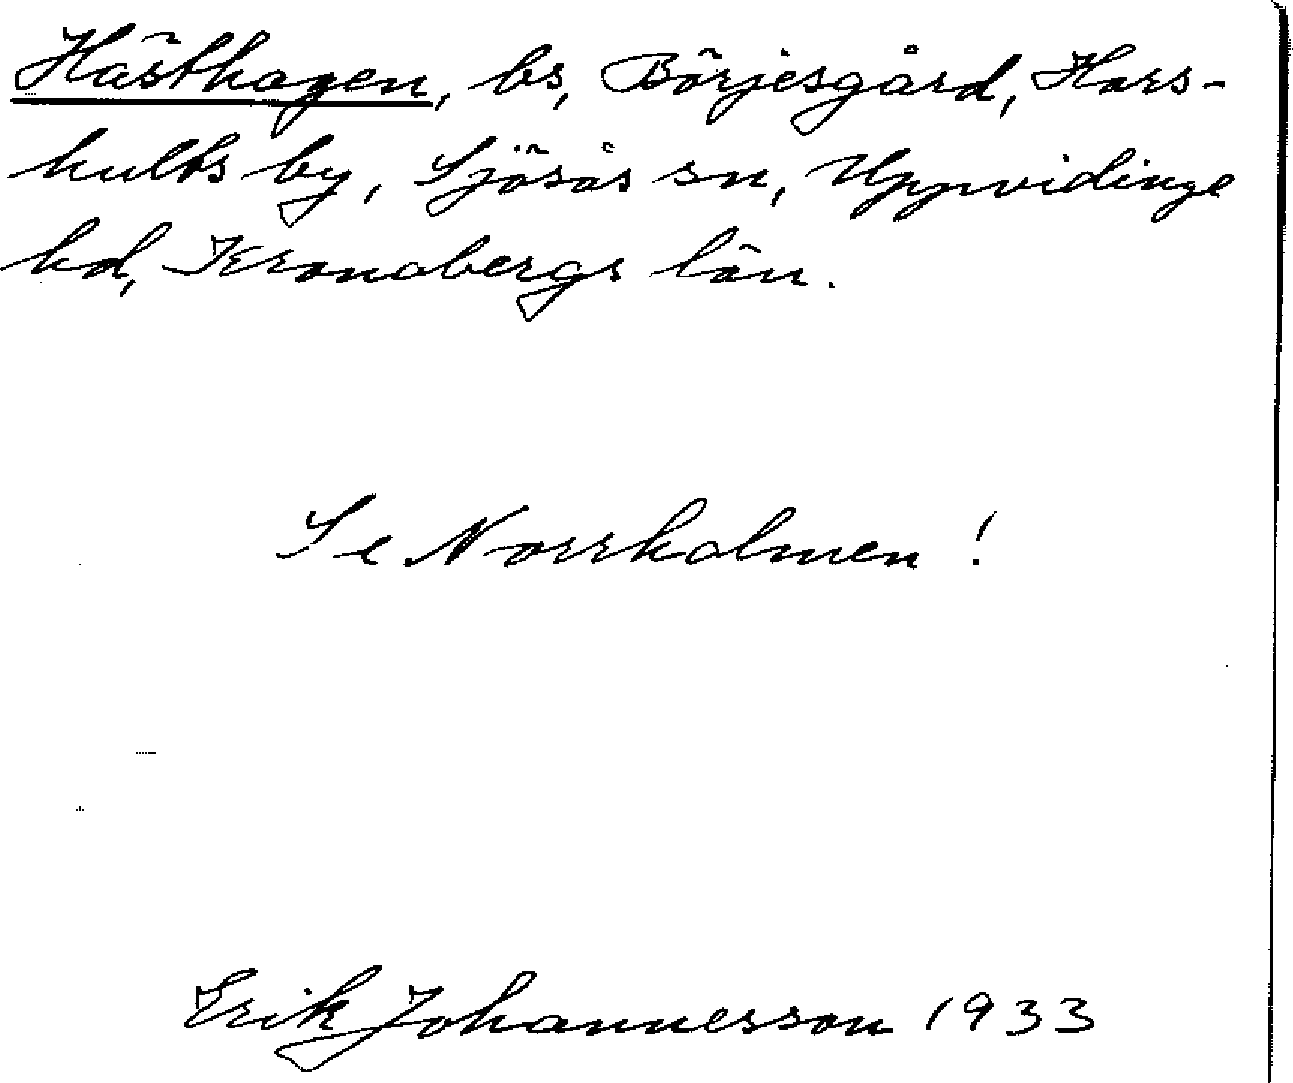 Hästhagen, bs, Börjesgård, Hors-
hults by, Sjösås sn, Uppvidinge
hd, Kronobergs län.
Se Norrholmen!
Erik Johannesson 1933